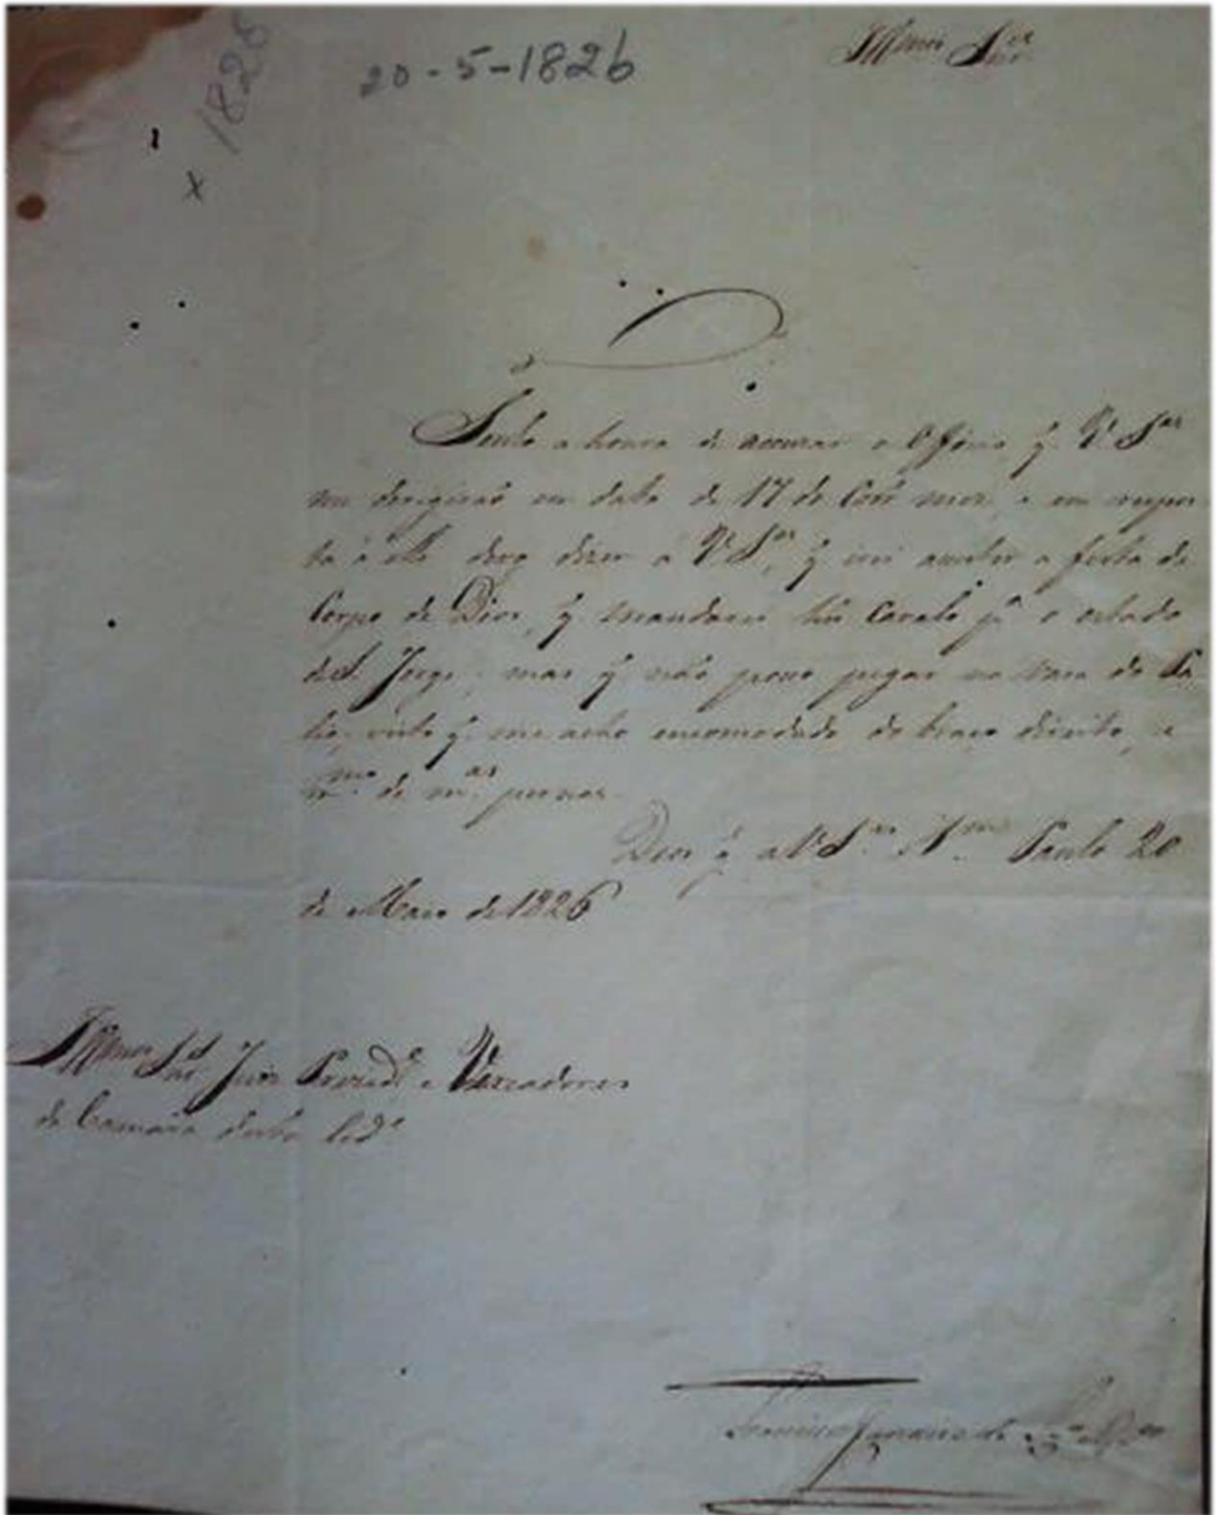 1826
20-5-1826
Illmos Snres
Tenho a honra de accuzar o Officio q̃ V. Sas
me dirigirão em data de 17 do Corre mez, e em respos
ta a elle devo dizer a V. Sas, q̃ irei assistir a festa de
Corpo de Dios, q̃ mandarei hũ Cavalo pa o estado
de S. Jorge; mas q̃ não posso pegar na vara do Pa
lio, visto q̃ me acho encomodado do braço direito, e
mmo de mas pernas.
Deos g. a V. Sas Paulo 20
de Maio de 1826
Illmos Snres Juiz Prezide e Vereadores
da Camara desta Cide
Francisco Ignacio de